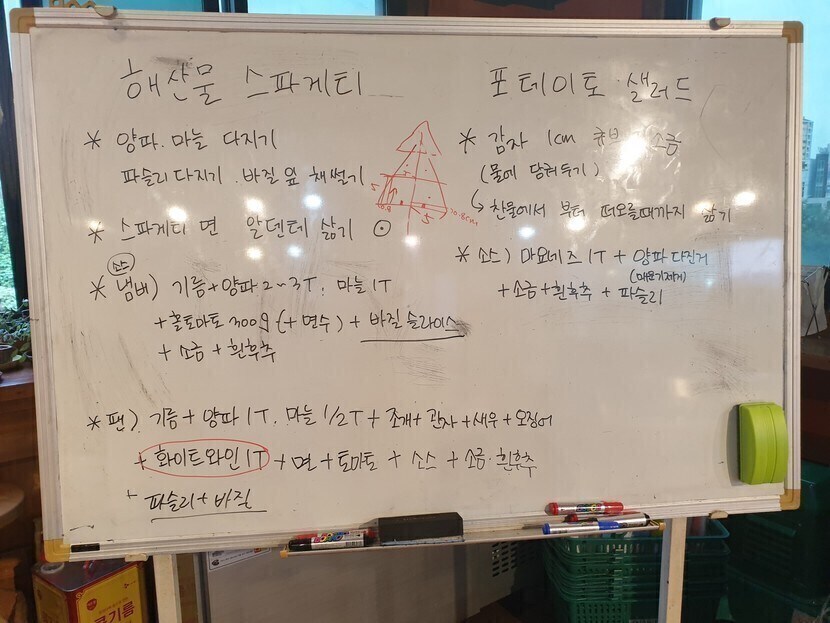 해산물 스파게티
* 양파. 마늘 다지기
파슬리 다지기. 바질 잎 채썰기
* 스파게티 면 알덴테 삶기
소스
* 냄비) 기름+양파 2~3T. 마늘 1T
+ 홀토마토 300g (+ 면수) + 바질 슬라이스
+ 소금 + 흰후추
* 팬) 기름 + 양파 1T. 마늘 1/2T + 조개 + 관자 + 새우 + 오징어
+ 화이트와인 1T + 면 + 토마토 + 소스 + 소금. 흰후추
+ 파슬리 + 바질
포테이토 샐러드
* 감자 1cm 큐브 소금
(물에 담궈두기)
↳ 찬물에서 부터 떠오를때까지 삶기
* 소스) 마요네즈 1T + 양파 다진거
(매운기제거)
+ 소금 + 흰후추 + 파슬리
5
콩기름